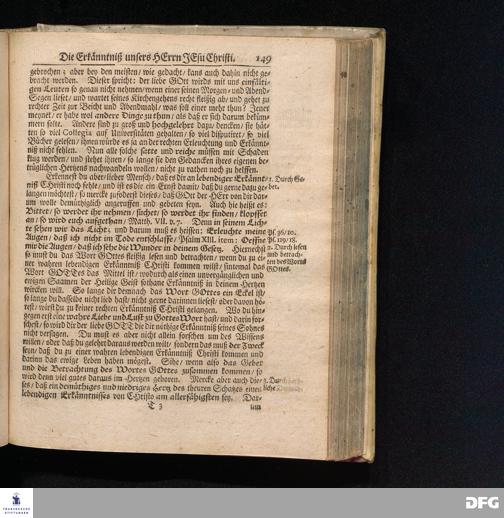 Die Erkänntniß unsers HErrn JEsu Christi. 149
gebrochen; aber bey den meisten/ wie gedacht/ kans auch dahin nicht ge-
bracht werden. Dieser spricht: der liebe GOtt wirds mit uns einfälti-
gen Leuten so genau nicht nehmen/ wenn einer seinen Morgen- und Abend-
Segen lieset/ und wartet seines Kirchengehens recht fleißig ab/ und gehet zu
rechter Zeit zur Beicht und Abendmahl/ was soll einer mehr thun? Jener
meynet/ er habe wol andere Dinge zu thun/ als daß er sich darum beküm-
mern solte. Andere sind zu groß und hochgelehrt dazu/ dencken/ sie hät-
ten so viel Collegia auf Universitäten gehalten/ so viel disputiret/ so viel
Bücher gelesen/ ihnen würde es ja an der rechten Erleuchtung und Erkännt-
niß nicht fehlen. Nun alle solche satte und reiche müssen mit Schaden
klug werden/ und stehet ihnen/ so lange sie den Gedancken ihres eigenen be-
trüglichen Hertzens nachwandeln wollen/ nicht zu rathen noch zu helffen.
Erkennest du aber lieber Mensch/ daß es dir an lebendiger Erkännt- 1. Durch Ge-
niß Christi noch fehle/ und ist es dir ein Ernst damit/ daß du gerne dazu ge- bet.
langen möchtest/ so mercke zuförderst dieses/ daß GOtt der HErr von dir dar-
um wolle demüthiglich angeruffen und gebeten seyn. Auch hie heißt es:
Bittet/ so werdet ihr nehmen/ suchet/ so werdet ihr finden/ klopffet
an/ so wird euch aufgethan/ Matth. VII. v. 7. Denn in seinem Lich-
te sehen wir das Licht/ und darum muß es heissen: Erleuchte meine Ps. 36/10.
Augen/ daß ich nicht im Tode entschlaffe/ Psalm XIII. item: Oeffne Ps. 119/18.
mir die Augen/ daß ich sehe die Wunder in deinem Gesetz. Hiernechst 2. Durch lesen
so must du das Wort GOttes fleißig lesen und betrachten/ wenn du zu ei- und betrach-
ner wahren lebendigen Erkänntniß Christi kommen wilst/ sintemal das ten des Worts
Wort GOTTes das Mittel ist/ wodurch als einen unvergänglichen und GOttes.
ewigen Saamen der Heilige Geist sothane Erkänntniß in deinem Hertzen
wircken will. So lange dir demnach das Wort GOttes ein Eckel ist/
so lange du dasselbe nicht lieb hast/ nicht gerne darinnen liesest/ oder davon hö-
rest/ wirst du zu keiner rechten Erkänntniß Christi gelangen. Wo du hin-
gegen erst eine wahre Liebe und Lust zu Gottes Wort hast/ und darin for-
schest/ so wird dir der liebe GOTT die dir nöthige Erkänntniß seines Sohnes
nicht versagen. Du must es aber nicht allein forschen um des Wissens
willen/ oder daß du gelehrt daraus werden wilt/ sondern das muß der Zweck
seyn/ daß du zu einer wahren lebendigen Erkänntniß Christi kommen und
darinn das ewige Leben haben mögest. Sihe/ wenn also das Gebet
und die Betrachtung des Wortes GOttes zusammen kommen/ so
wird denn viel gutes daraus im Hertzen geboren. Mercke aber auch die-
ses/ daß ein demüthiges und niedriges Hertz des theuren Schatzes einer
lebendigen Erkänntnisses von CHristo am allerfähigsten sey. Dar-
T 3 um
FRANCKESCHE STIFTUNGEN
DFG